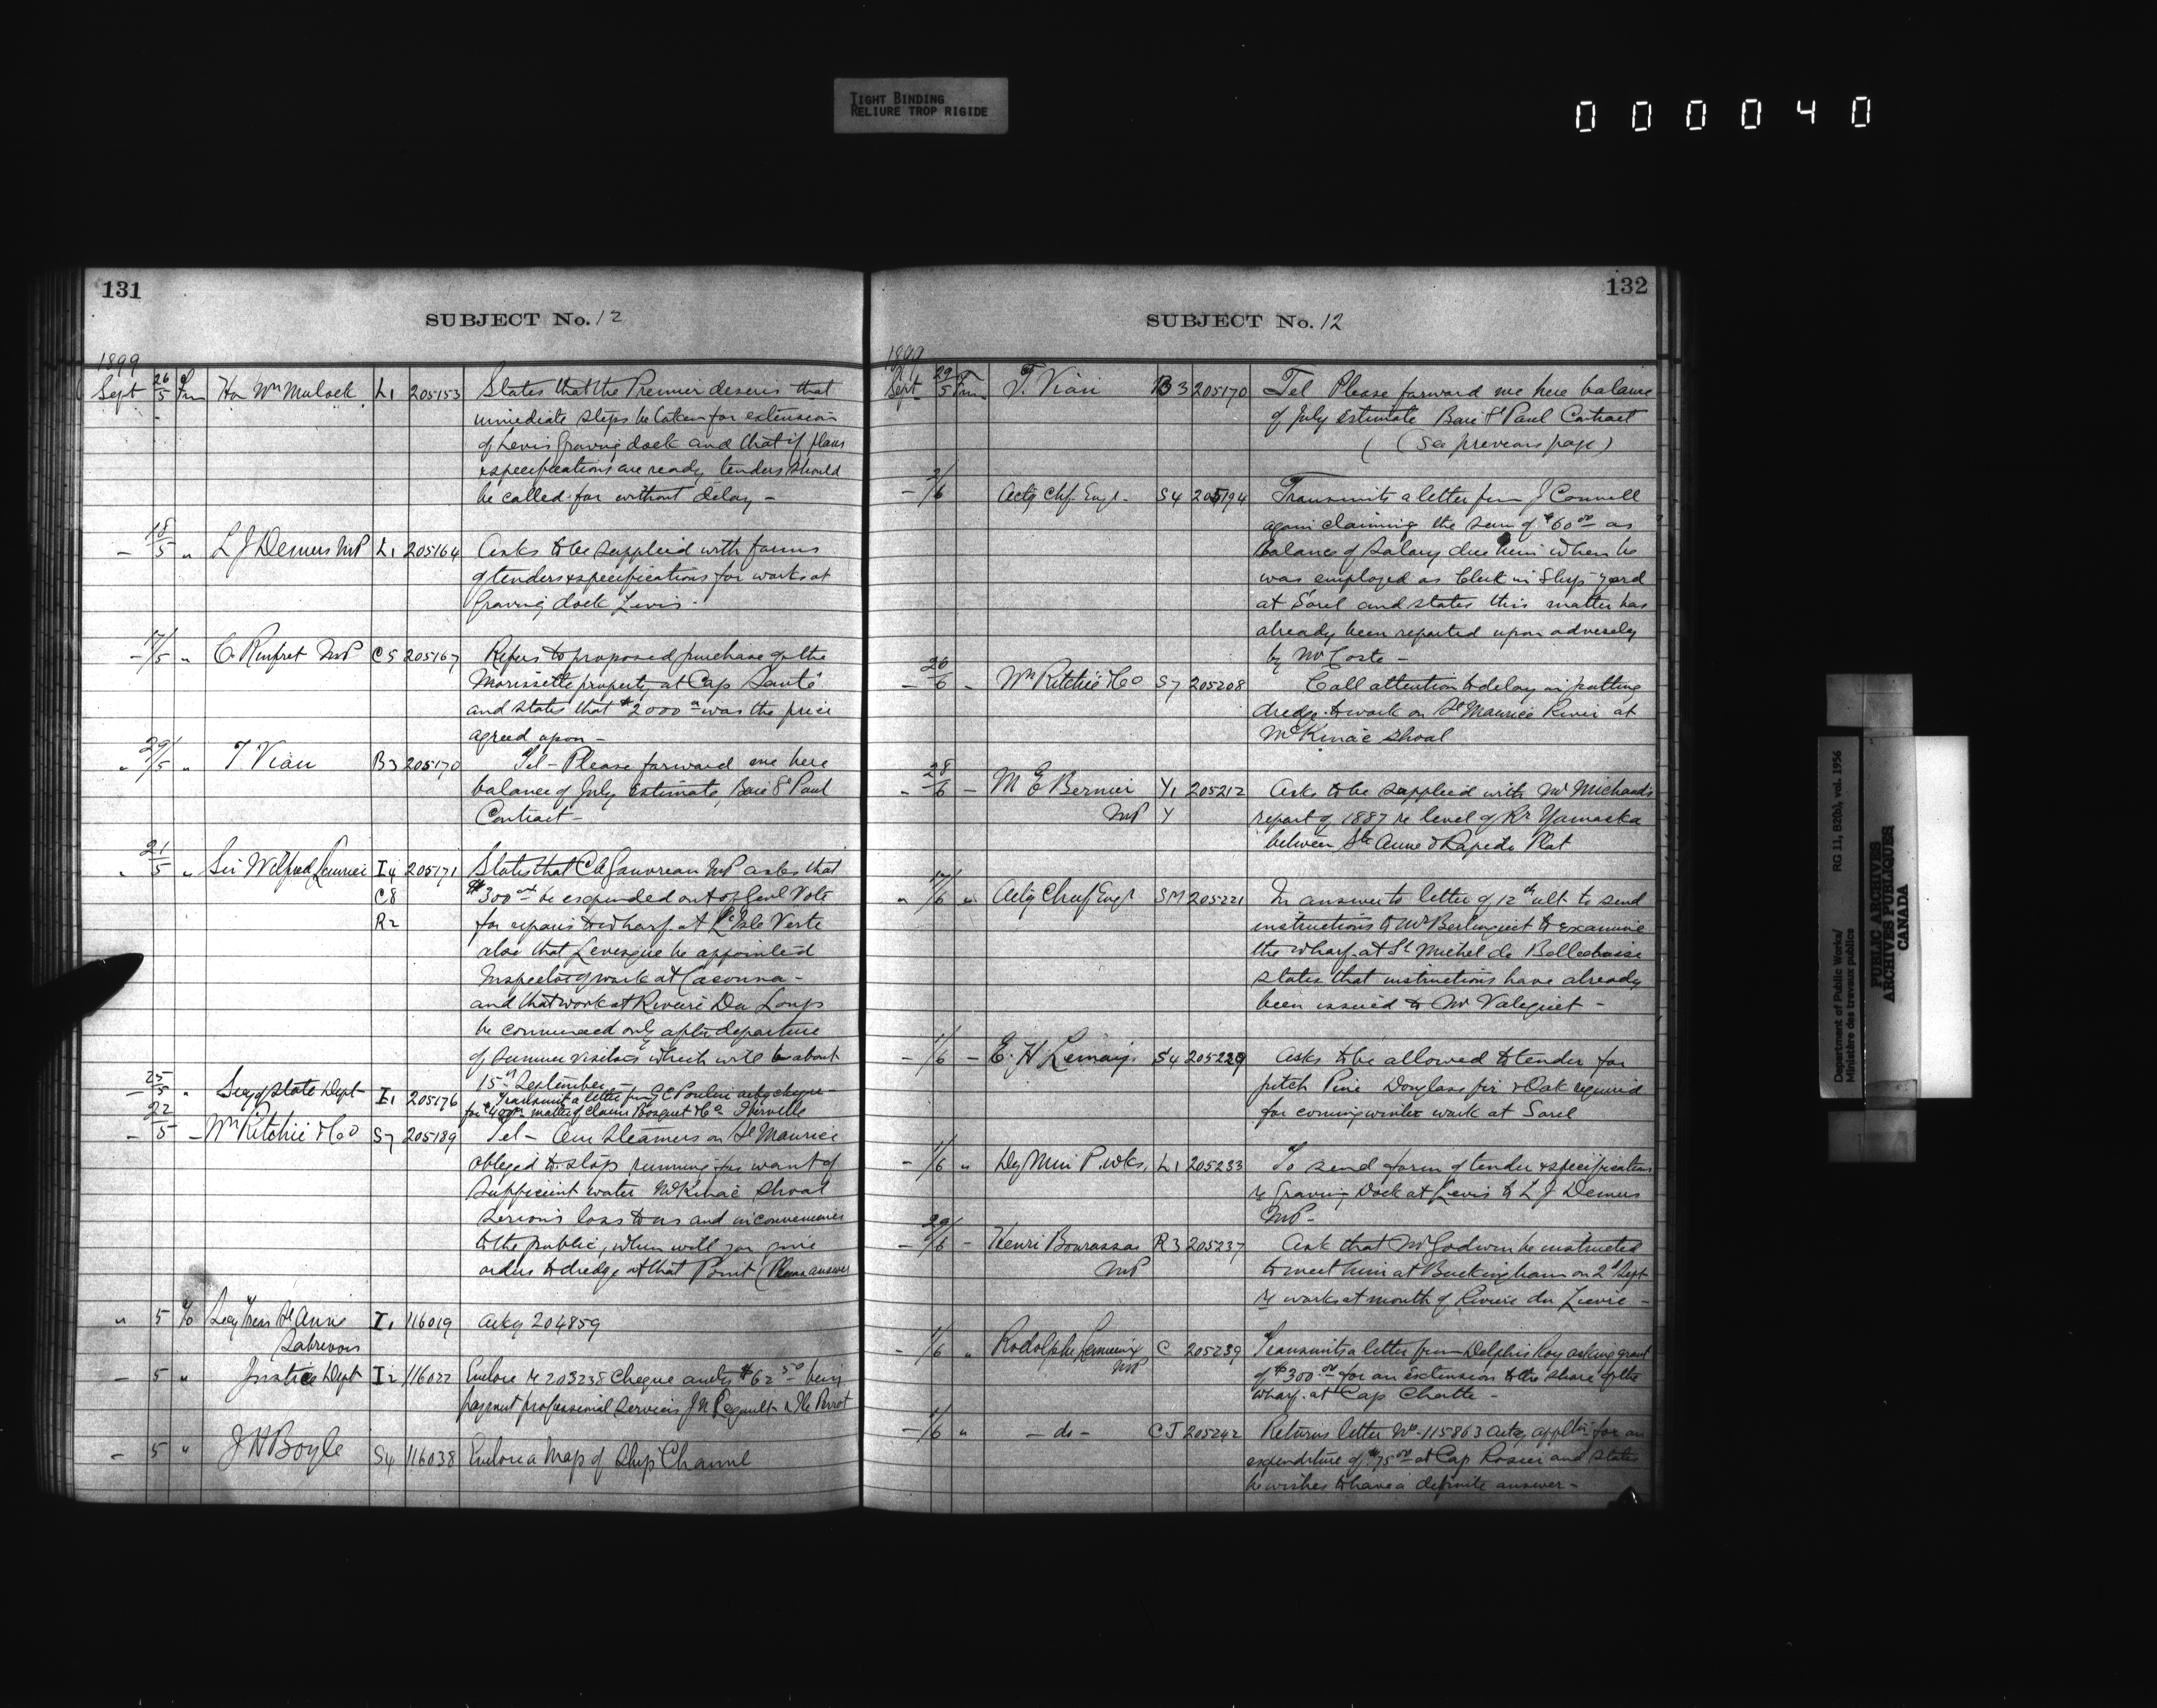 TIGHT BINDING
RELIURE TROP RIGIDE
000040
131
SUBJECT No. 12
1899
Sept 26/5 Fm Hon Wm Mulock L1 205153 States that the Premier desires that
immediate steps be taken for extension
of Levis Graving dock and that if plans
& specifications are ready, tenders should
be called for without delay -
- 18/5 " L J Demers MP L1 205164 Asks to be supplied with forms
of tenders & specifications for works at
Graving dock Levis -
- 17/5 " C. Rinfret MP C5 205167 Refers to proposed purchase of the
Morissette property at Cap Santé
and states that $2000 was the price
agreed upon -
" 29/5 " T. Viau B3 205170 Tel - Please forward me here
balance of July Estimate, Baie St Paul
Contract -
" 21/5 " Sir Wilfred Laurier I4 205171 States that C A Gauvreau MP asks that
C8 $300 00 be expended out of Genl Vote
R2 for repairs to wharf at L'Isle Verte
also that Levesque be appointed
Inspector of work at Cacouna -
and that work at Riviere Du Loup
be commenced only after departure
of summer visitors which will be about
15th September -
- 25/5 " Secy of State Dept I1 205176 Transmit a letter from J C Poulin acky cheque
for $400 matter of claim Bosquet & Co Iberville
- 22/5 - Wm Ritchie & Co S7 205189 Tel - Our steamers on St Maurice
obliged to stop running for want of
sufficient water McKinac Shoal
serious loss to us and inconvenience
to the public, when will you give
orders to dredge at that Point (Please answer
" 5 To Secy Treas St Anne I1 116019 Acky 204859
Sabrevois
- 5 " Justice Dept I2 116022 Enclose re 203235 Cheque amtg $62 50 being
payment professional services J N Regault & Ile Perrot
- 5 " J H Boyle S4 116038 Enclose a Map of Ship Channel
132
SUBJECT No. 12
1899
Sept 29/5 Fm T. Viau B3 205170 Tel Please forward me here balance
of July estimate Baie St Paul Contract
(See previous page)
- 2/6 Actg Chf. Engr. S4 205194 Transmits a letter from J Connell
again claiming the sum of $60 00 as
balance of salary due him when he
was employed as Clerk in Ship-yard
at Sorel and states this matter has
already been reported upon adversely
by Mr Coste -
- 26/6 - Wm Ritchie & Co S7 205208 Call attention to delay in putting
dredge to work on St Maurice River at
McKinac Shoal
" 28/6 - M E Bernier Y1 205212 Asks to be supplied with Mr Michaud's
MP Y report of 1887 re level of Rr Yamaska
between Ste Anne & Rapide Plat
" 17/6 " Actg Chief Engr SM 205221 In answer to letter of 12th ult to send
instructions to Mr Berlinguet to examine
the wharf at St Michel de Bellechasse
states that instructions have already
been issued to Mr Valiquet -
- 1/6 - E. H. Lemay S4 205229 Asks to be allowed to tender for
pitch Pine Douglass fir & Oak required
for coming winter work at Sorel
- 1/6 " Dy Min P. Wks. L1 205233 To send form of tender & specification
re Graving Dock at Levis to L J Demers
MP -
- 29/6 - Henri Bourassa R3 205237 Ask that Mr Godwin be instructed
MP to meet him at Buckingham on 2d Sept
re works at mouth of Riviere du Lievre -
- 1/6 " Rodolphe Lemieux C 205239 Transmits a letter from Delphis Roy asking grant
MP of $300 00 for an extension to the shore of the
wharf at Cap Chatte -
- 1/6 " - do - CJ 205242 Returns letter No 115863 ackg appltn for an
expenditure of $75 00 at Cap Rosier and states
he wishes to have a definite answer -
Department of Public Works/ RG 11, B2(b), vol. 1956
Ministère des travaux publics
PUBLIC ARCHIVES
ARCHIVES PUBLIQUES
CANADA